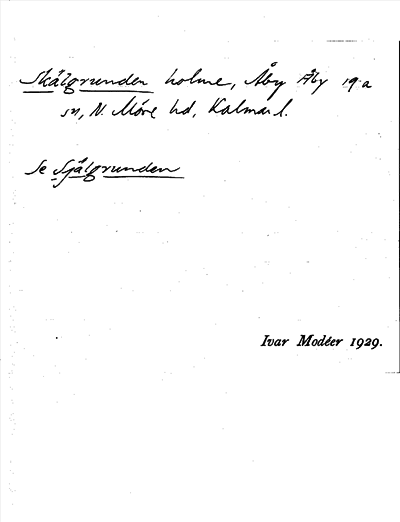 Skälgrunden holme, Åby Åby 19 a
sn, N. Möre hd, Kalmar l.
Se Själgrunden
Ivar Modéer 1929.